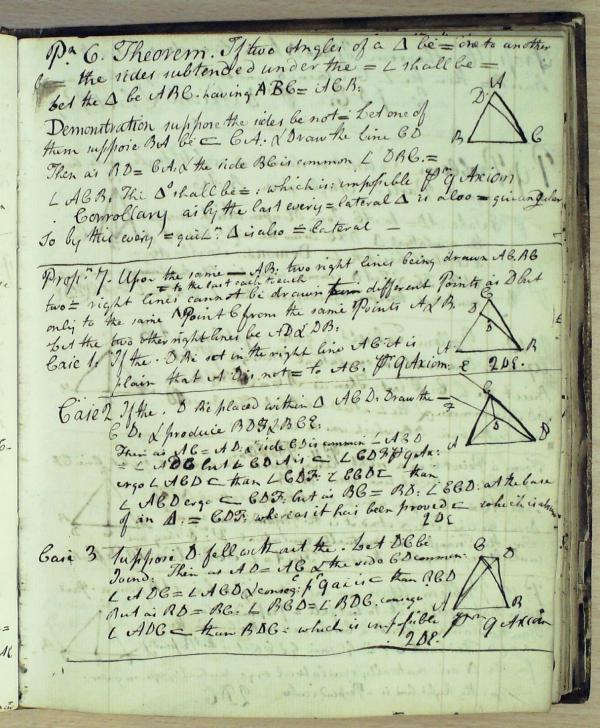 Pn 6. Theorem. If two Angles of a Δ be = one to another
the sides subtended under the = ∠ shall be =
let the Δ be ABC. having ABC = ACB.
Demonstration suppose the sides be not = Let one of
them suppose BA be ⊏ CA. & Draw the Line CD
Then as BD = CA. & the side BC is common ∠ DBC. =
∠ ACB. The Δs shall be =: which is: impossible pr 9 Axiom
Corrollary as by the last every = lateral Δ is also = quiangular
So by this every = quilr Δ is also = lateral —
D A B C
Propn 7. Upon the same — AB: two right lines being drawn AC, BC
= to the last each to each
two = right lines cannot be drawn different Points as D but
only to the same Point C from the same Points A & B.
Let the two other right lines be AD & DB:
Case 1: If the . D Be set in the right line AC it is
plain that AD is not = to AC. pr 9 Axiom: 2DE.
C D A B
Case 2 If the . D Be placed within Δ ACD. Draw the —
CD: & produce BDF & BCE.
Then as AC = AD: & side CD is common ∠ ACD
= ∠ ADC but ∠ CDA is ⊏ ∠ CDF: pr 9 Ax:
ergo ∠ ACD ⊏ than ∠ CDF: & ECD ⊏ than
∠ ACD ergo ⊏ CDF: but as BC = BD: ∠ ECD: at the base
of an Δ: = CDF: whereas it has been proved ⊏ which is
2DE
E C F D A B
Case 3 Suppose D fell without the . Let DC be
Joynd: Then as AD = AC & the side CD common:
∠ ADC = ∠ ACD & conseq: pr 9 ax is ⊏ than BCD
But as BD = BC: ∠ BCD = ∠ BDC. conseq
∠ ADC ⊏ than BDC: which is impossible pr 9 Axiom
2DE.
C D A B